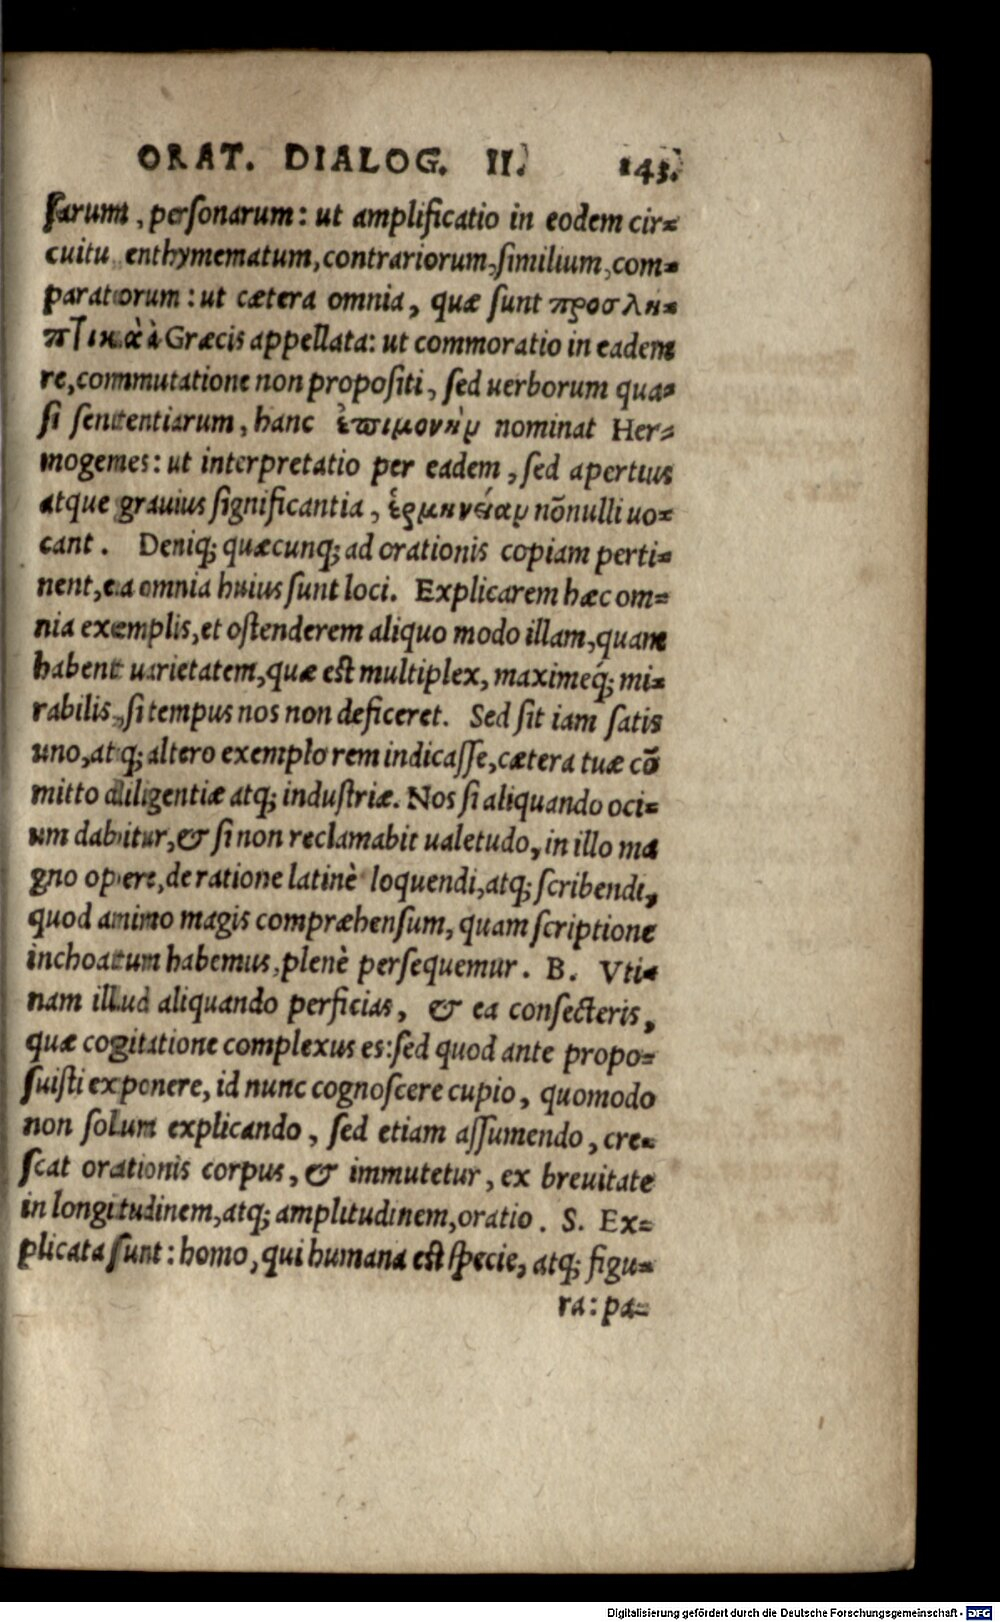 ORAT. DIALOG. II. 143.
sarum, personarum: ut amplificatio in eodem cir=
cuitu enthymematum, contrariorum, similium, com=
paratorum: ut cætera omnia, quæ sunt προσλη=
πτικὰ à Græcis appellata: ut commoratio in eadem
re, commutatione non propositi, sed uerborum qua=
si sententiarum, hanc ἐπιμονὴν nominat Her=
mogenes: ut interpretatio per eadem, sed apertius
atque grauius significantia, ἑρμηνείαν nõnulli uo=
cant. Deniq; quæcunq; ad orationis copiam perti=
nent, ea omnia huius sunt loci. Explicarem hæc om=
nia exemplis, et ostenderem aliquo modo illam, quam
habent uarietatem, quæ est multiplex, maximeq́; mi=
rabilis, si tempus nos non deficeret. Sed sit iam satis
uno, atq; altero exemplo rem indicasse, cætera tuæ cõ
mitto diligentiæ atq; industriæ. Nos si aliquando oci=
um dabitur, & si non reclamabit ualetudo, in illo ma
gno opere, de ratione latinè loquendi, atq; scribendi,
quod animo magis compræhensum, quam scriptione
inchoatum habemus, plenè persequemur. B. Vti=
nam illud aliquando perficias, & ea consecteris,
quæ cogitatione complexus es: sed quod ante propo=
suisti exponere, id nunc cognoscere cupio, quomodo
non solum explicando, sed etiam assumendo, cre=
scat orationis corpus, & immutetur, ex breuitate
in longitudinem, atq; amplitudinem, oratio. S. Ex=
plicata sunt: homo, qui humana est specie, atq; figu=
ra: pa=
Digitalisierung gefördert durch die Deutsche Forschungsgemeinschaft - DFG